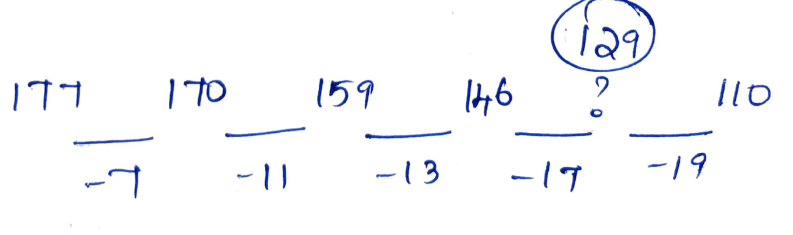 129
177 170 159 146 ? 110
-7 -11 -13 -17 -19